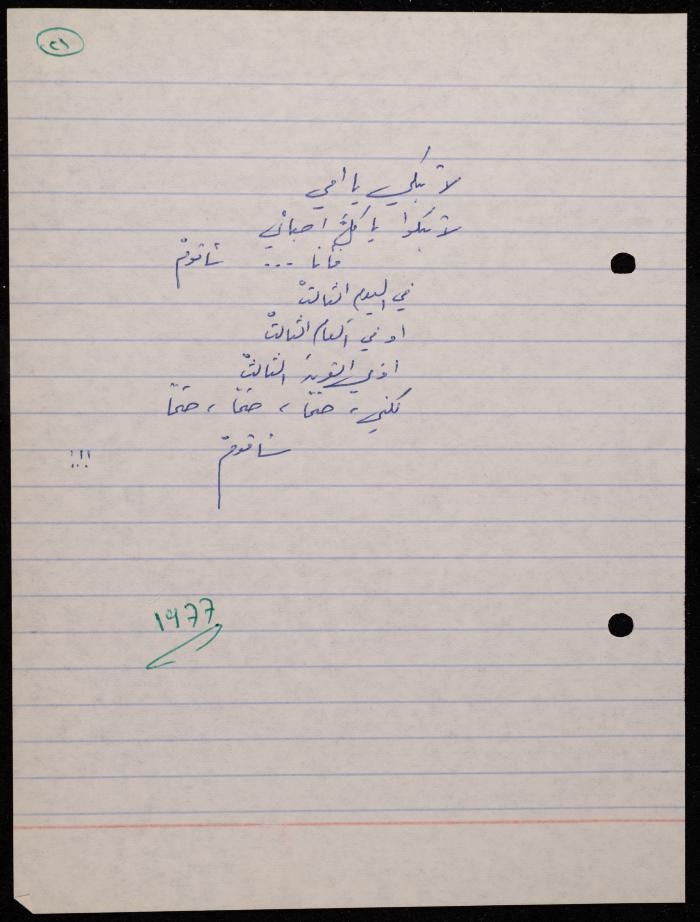 ٢١
لا تبكي يا امي
لا تبكوا يا كلَّ احبائي
فأنا ... سأقومْ
في اليوم الثالثْ
او في العام الثالثْ
او في القرن الثالثْ
لكني، حتماً، حتماً، حتماً
سأقومْ !!!
1977